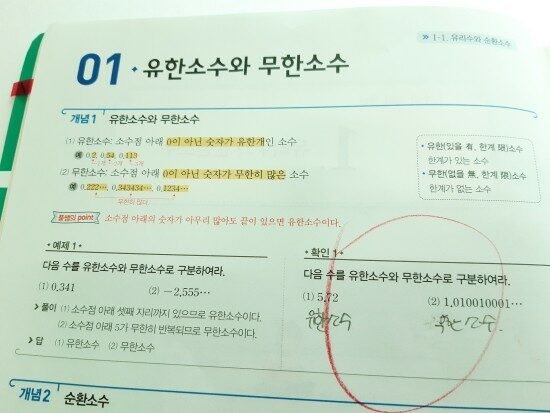 » 1-1. 유리수와 순환소수
01 • 유한소수와 무한소수
개념 1 유한소수와 무한소수
(1) 유한소수: 소수점 아래 0이 아닌 숫자가 유한개인 소수
예 0.2, 0.54, 0.113
1개 2개 3개
(2) 무한소수: 소수점 아래 0이 아닌 숫자가 무한히 많은 소수
예 0.222⋯, 0.343434⋯, 0.1234⋯
무한히 많다.
• 유한(있을 有, 한계 限)소수
한계가 있는 소수
• 무한(없을 無, 한계 限)소수
한계가 없는 소수
풍쌤의 point 소수점 아래의 숫자가 아무리 많아도 끝이 있으면 유한소수이다.
• 예제 1 •
다음 수를 유한소수와 무한소수로 구분하여라.
(1) 0.341 (2) -2.555⋯
풀이 (1) 소수점 아래 셋째 자리까지 있으므로 유한소수이다.
(2) 소수점 아래 5가 무한히 반복되므로 무한소수이다.
답 (1) 유한소수 (2) 무한소수
• 확인 1 •
다음 수를 유한소수와 무한소수로 구분하여라.
(1) 5.72 (2) 1.010010001⋯
유한소수 무한소수
개념 2 순환소수